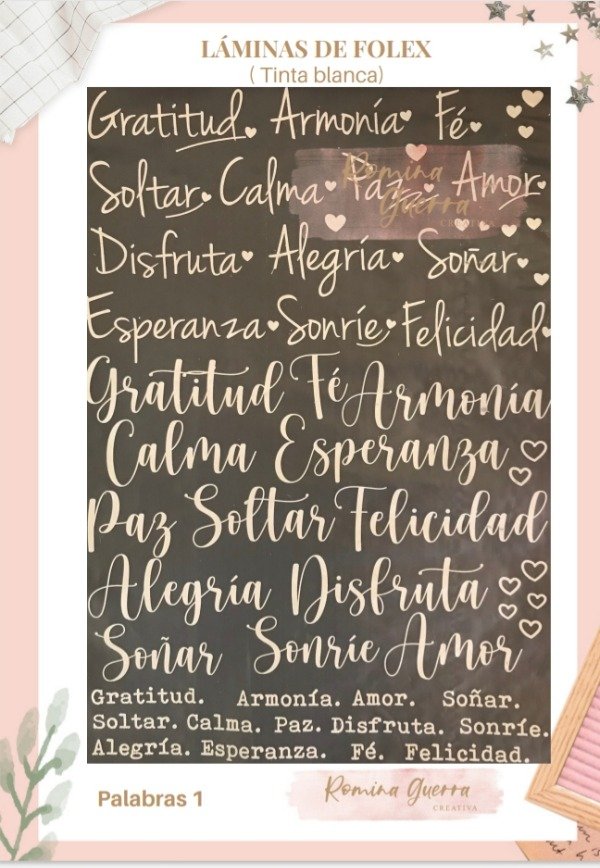 LÁMINAS DE FOLEX
( Tinta blanca)
Gratitud. Armonía Fé.
Soltar. Calma Paz Amor
Romina
Guerra
CREATIVA
Disfruta Alegría Soñar
Esperanza Sonríe Felicidad
Gratitud Fé Armonía
Calma Esperanza
Paz Soltar Felicidad
Alegría Disfruta
Soñar Sonríe Amor
Gratitud. Armonía. Amor. Soñar.
Soltar. Calma. Paz. Disfruta. Sonríe.
Alegría. Esperanza. Fé. Felicidad.
Palabras 1
Romina Guerra
CREATIVA